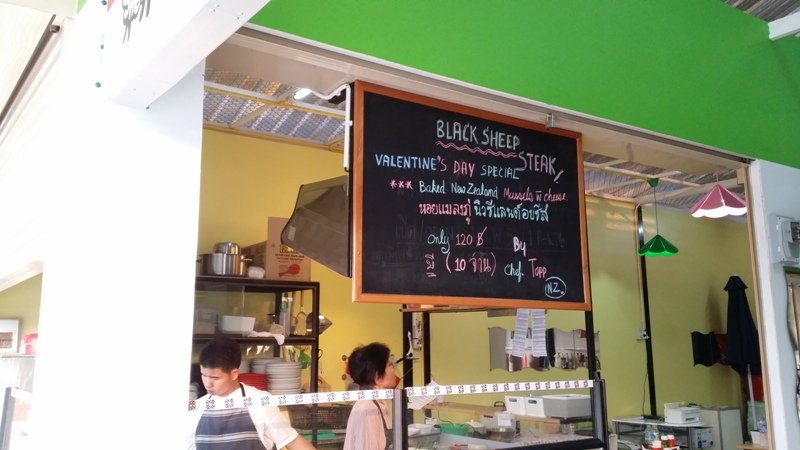 BLACK SHEEP
STEAK!
VALENTINE'S DAY SPECIAL
*** Baked New Zealand Mussels w cheese
หอยแมลงภู่ นิวซีแลนด์อบชีส
Only 120 ฿
By
มี (10 จาน) Chef. Topp
N.Z.